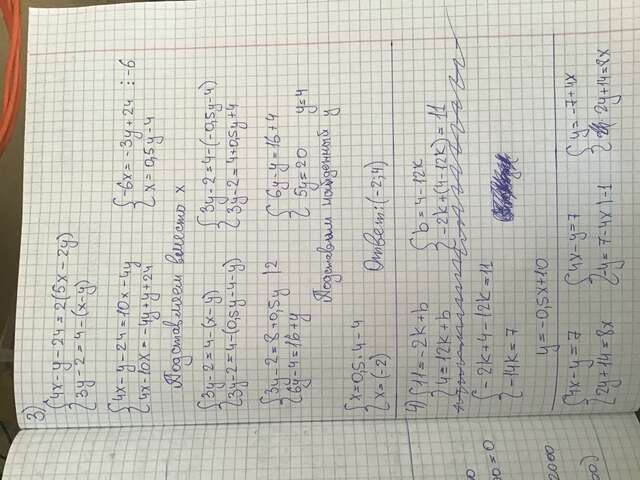 3) {4x-y-24=2(5x-2y)
{3y-2=4-(x-y)
{4x-y-24=10x-4y
{4x-10x=-4y+y+24
{-6x=-3y+24 :-6
{x=0,5y-4
Подставляем вместо x
{3y-2=4-(x-y)
{3y-2=4-(0,5y-4-y)
{3y-2=4-(-0,5y-4)
{3y-2=4+0,5y+4
{3y-2=8+0,5y |2
{6y-4=16+y
{6y-y=16+4
{5y=20 y=4
Подставим найденный y
{x=0,5·4-4
{x=(-2)
Ответ:(-2;4)
4) {11=-2k+b
{4=12k+b
{b=4-12k
{-2k+(4-12k)=11
{-2k+4-12k=11
{-14k=7
y=-0,5x+10
{4x-y=7
{2y+14=8x
{4x-y=7
{-y=7-4x |-1
{y=-7+4x
{2y+14=8x
=0
2000